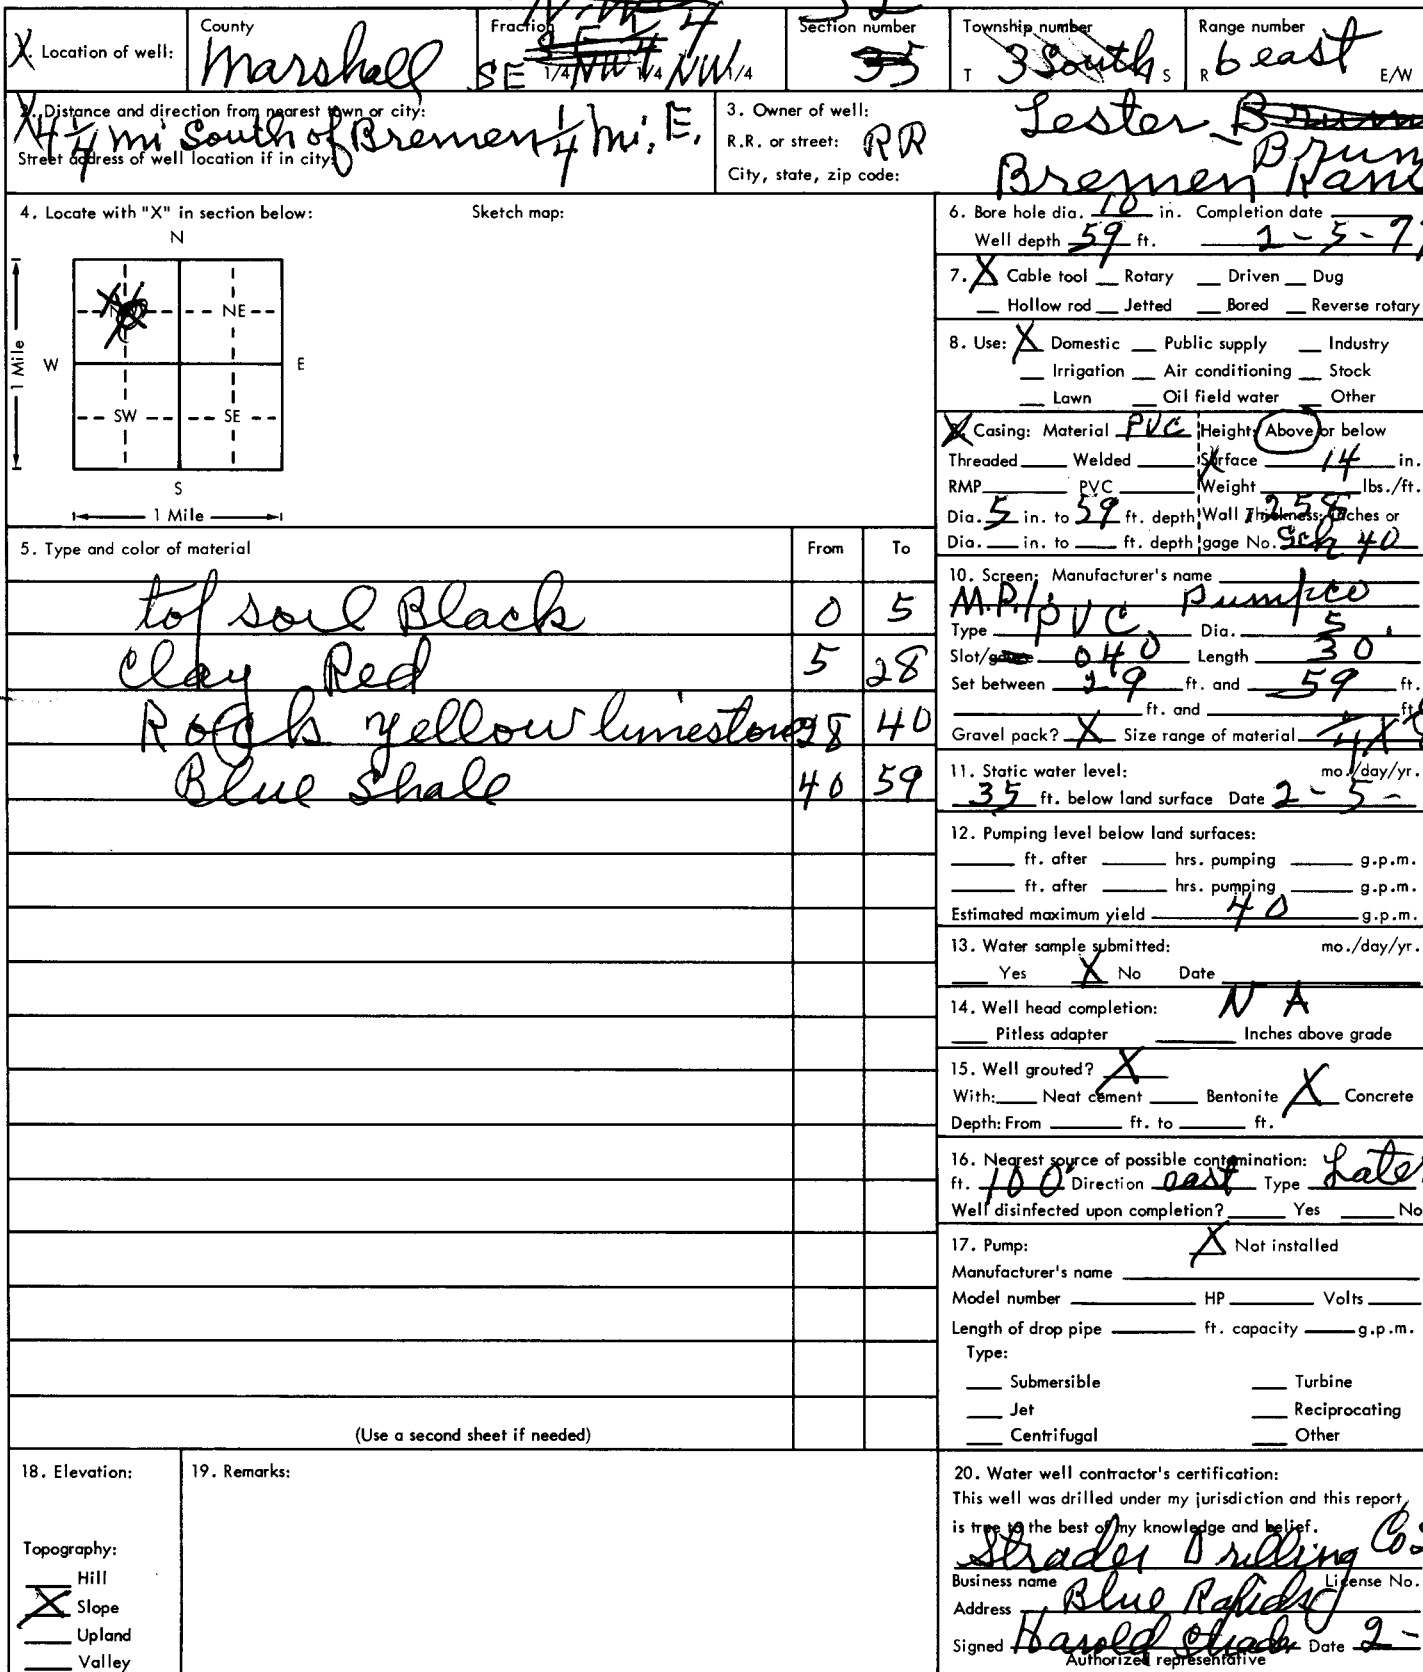 1. Location of well: County Marshall Fraction SE 1/4 NW 1/4 NW 1/4 Section number Township number T 3 South S Range number R 6 east E/W
2. Distance and direction from nearest town or city:
4 1/4 mi South of Bremen 1/4 mi. E.
Street address of well location if in city:
3. Owner of well: Lester
R.R. or street: RR Brun
City, state, zip code: Bremen Kans
4. Locate with "X" in section below: Sketch map:
N
NW NE
W E
SW SE
S
1 Mile
1 Mile
5. Type and color of material From To
top soil Black 0 5
Clay Red 5 28
Rock yellow limestone 28 40
Blue Shale 40 59
(Use a second sheet if needed)
6. Bore hole dia. 10 in. Completion date
Well depth 59 ft. 2-5-7
7. X Cable tool Rotary Driven Dug
Hollow rod Jetted Bored Reverse rotary
8. Use: X Domestic Public supply Industry
Irrigation Air conditioning Stock
Lawn Oil field water Other
9. Casing: Material PVC Height: Above or below
Threaded Welded Surface 14 in.
RMP PVC Weight lbs./ft.
Dia. 5 in. to 59 ft. depth Wall Thickness: inches or .258
Dia. in. to ft. depth gage No. Sch 40
10. Screen: Manufacturer's name
M.P.I. Pumpco
Type PVC Dia. 5
Slot/gauze 040 Length 30'
Set between 29 ft. and 59 ft.
ft. and ft.
Gravel pack? X Size range of material
11. Static water level: mo./day/yr.
35 ft. below land surface Date 2-5-
12. Pumping level below land surfaces:
ft. after hrs. pumping g.p.m.
ft. after hrs. pumping g.p.m.
Estimated maximum yield 40 g.p.m.
13. Water sample submitted: mo./day/yr.
Yes X No Date
14. Well head completion: NA
Pitless adapter Inches above grade
15. Well grouted? X
With: Neat cement Bentonite X Concrete
Depth: From ft. to ft.
16. Nearest source of possible contamination:
ft. 100' Direction east Type Later
Well disinfected upon completion? Yes No
17. Pump: X Not installed
Manufacturer's name
Model number HP Volts
Length of drop pipe ft. capacity g.p.m.
Type:
Submersible Turbine
Jet Reciprocating
Centrifugal Other
18. Elevation:
Topography:
Hill
X Slope
Upland
Valley
19. Remarks:
20. Water well contractor's certification:
This well was drilled under my jurisdiction and this report
is true to the best of my knowledge and belief.
Strader Drilling Co.
Business name License No.
Address Blue Rapids
Signed Harold Strader Date 2-
Authorized representative